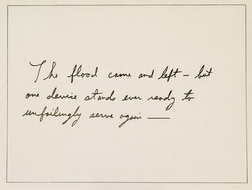 The flood came and left – but
one device stands ever ready to
unfailingly serve again —